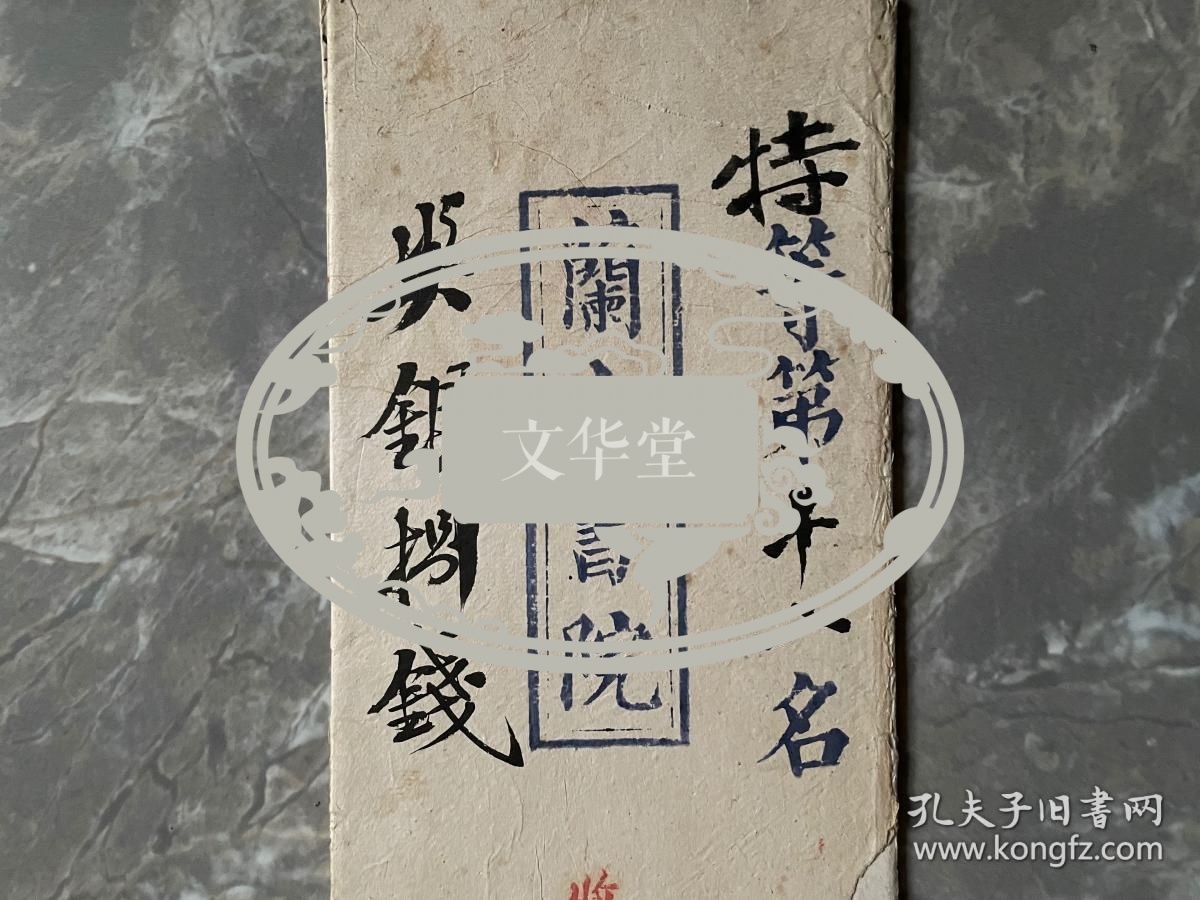 特等第十名
蘭書院
奖銀捌錢
文华堂
孔夫子旧書网
www.kongfz.com